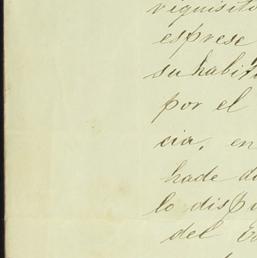 requisito
esprese
su habit
por el
cia, en
hade di
lo disp
del